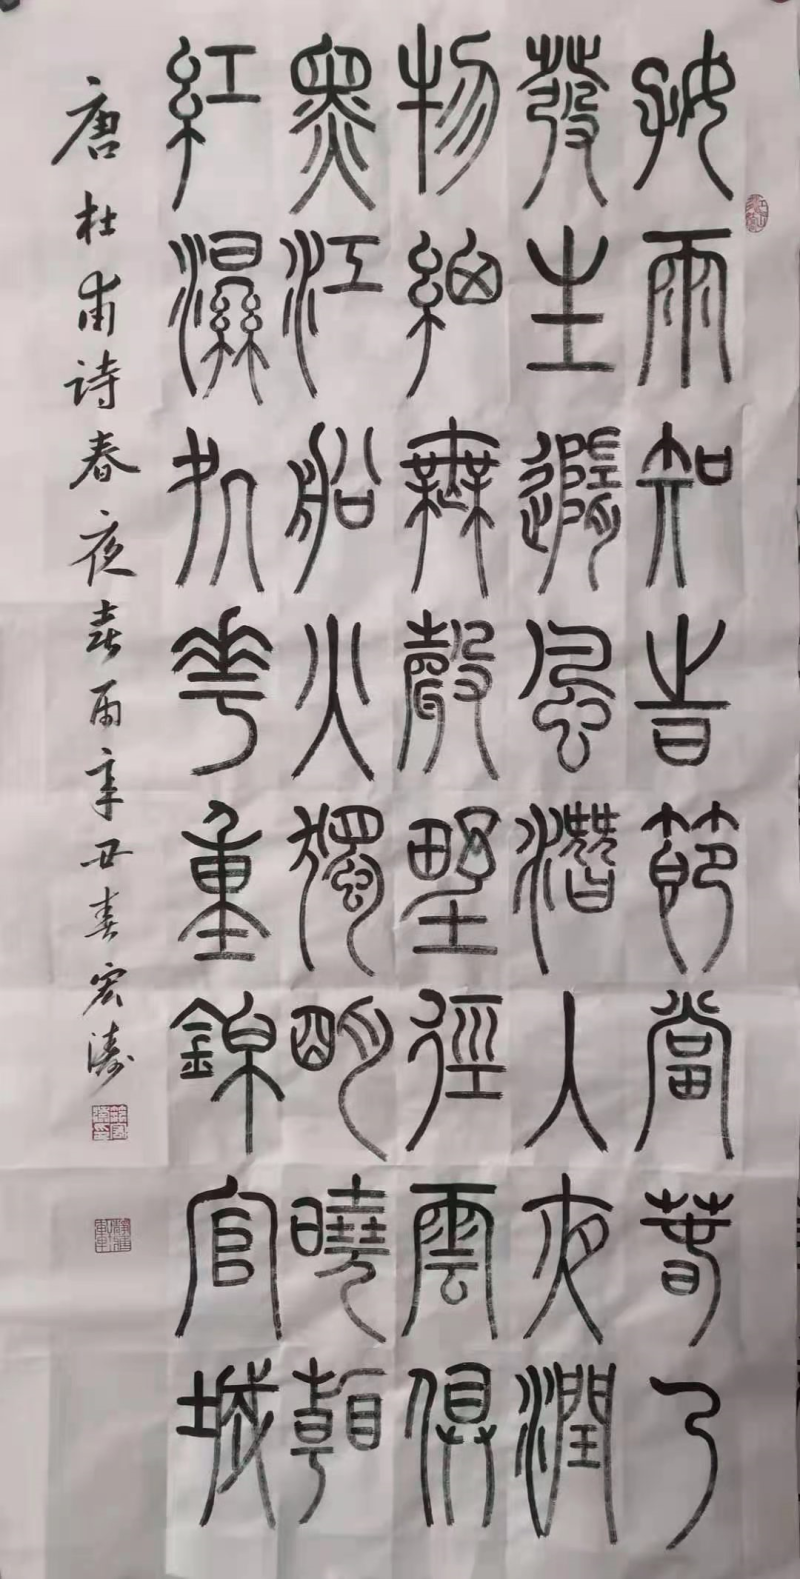 好雨知時節當春乃
發生隨風潛入夜潤
物細無聲野徑雲俱
黑江船火獨明曉看
紅濕処花重錦官城
唐杜甫诗春夜喜雨辛丑春宏濤